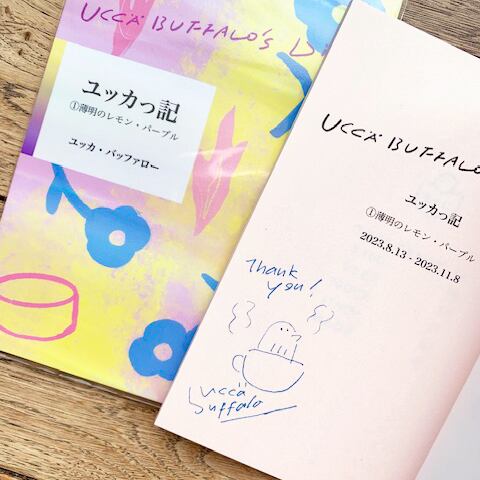 UCCÄ BUFFALO'S
ユッカっ記
①薄明のレモン・パープル
ユッカ・バッファロー
UCCÄ BUFFALO
ユッカっ記
①薄明のレモン・パープル
2023.8.13 - 2023.11.8
Thank
you!
uccä
buffalo